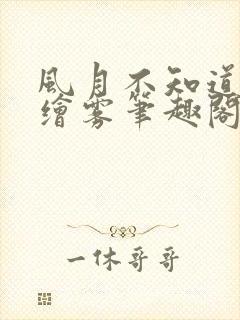 風月不知道
繪雾筆趣閣
一休哥哥